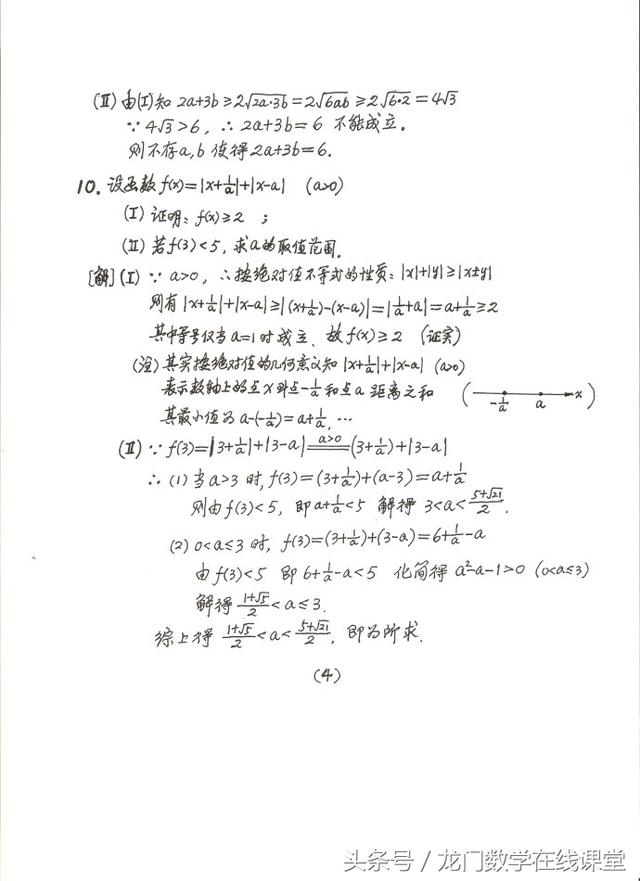 (Ⅱ) 由(Ⅰ)知 2a+3b≥2√(2a·3b)=2√(6ab)≥2√(6·2)=4√3
∵ 4√3>6, ∴ 2a+3b=6 不能成立.
则不存a,b 使得2a+3b=6.
10. 设函数f(x)=|x+1/a|+|x-a| (a>0)
(Ⅰ) 证明: f(x)≥2 ;
(Ⅱ) 若f(3)<5, 求a的取值范围.
[解] (Ⅰ) ∵ a>0, ∴按绝对值不等式的性质: |x|+|y|≥|x±y|
则有 |x+1/a|+|x-a|≥|(x+1/a)-(x-a)|=|1/a+a|=a+1/a≥2
其中等号仅当a=1时成立, 故f(x)≥2 (证实)
(注) 其实按绝对值的几何意义知 |x+1/a|+|x-a| (a>0)
表示数轴上的点x到点-1/a和点a距离之和 ( -1/a a x )
其最小值为 a-(-1/a)=a+1/a, …
(Ⅱ) ∵ f(3)=|3+1/a|+|3-a| a>0 = (3+1/a)+|3-a|
∴ (1) 当a>3时, f(3)=(3+1/a)+(a-3)=a+1/a
则由f(3)<5, 即a+1/a<5 解得 3<a<(5+√21)/2.
(2) 0<a≤3时, f(3)=(3+1/a)+(3-a)=6+1/a-a
由f(3)<5 即 6+1/a-a<5 化简得 a²-a-1>0 (0<a≤3)
解得 (1+√5)/2<a≤3.
综上得 (1+√5)/2<a<(5+√21)/2, 即为所求.
(4)
头条号 / 龙门数学在线课堂